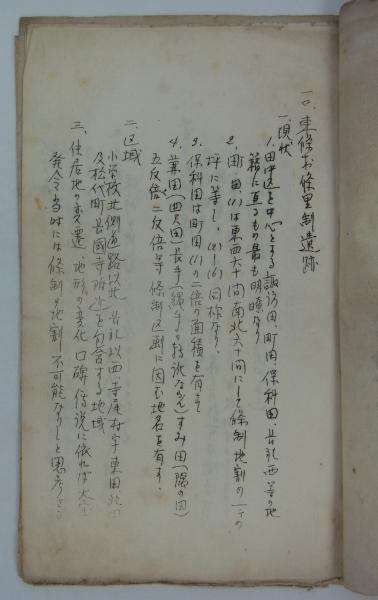 一〇、東條村條里制遺跡
一、現状
1. 田中区を中心とする諏訪田、町田、保科田、岩死西等の地
籍に亘るもの最も明瞭なり
2. 町田(1)は東西六十間南北六十間にして條制地割の一丁の
坪に等し、(2)—(6)同様なり、
3. 保科田は町田(1)の二倍の面積を有す
4. 葉田(四反田)長手(縄手の轉訛ならん)すみ田(隅の田)
五反倍、二反倍等條制区画に因む地名を有す、
二、区域
小学校北側道路以北、以西寺尾村字東田
及松代町長國寺附近を包含する地域
三、住居地の変遷、地形の変化、口碑傳説に依れば大
発令当時には條制の地割不可能なりしと思考さる